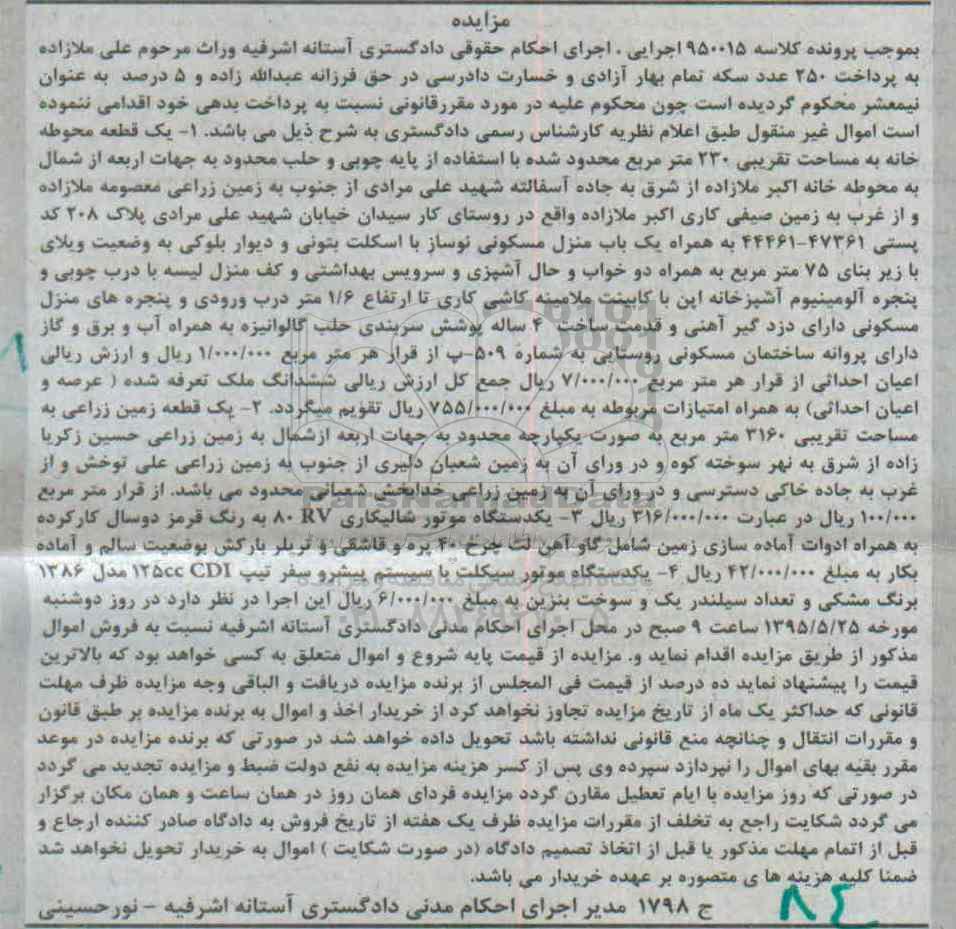 مزایده
بموجب پرونده کلاسه ۹۵۰۰۱۵ اجرایی ، اجرای احکام حقوقی دادگستری آستانه اشرفیه وراث مرحوم علی ملازاده
به پرداخت ۲۵۰ عدد سکه تمام بهار آزادی و خسارت دادرسی در حق فرزانه عبدالله زاده و ۵ درصد به عنوان
نیمعشر محکوم گردیده است چون محکوم علیه در مورد مقررقانونی نسبت به پرداخت بدهی خود اقدامی ننموده
است اموال غیر منقول طبق اعلام نظریه کارشناس رسمی دادگستری به شرح ذیل می باشد. ۱- یک قطعه محوطه
خانه به مساحت تقریبی ۲۳۰ متر مربع محدود شده با استفاده از پایه چوبی و حلب محدود به جهات اربعه از شمال
به محوطه خانه اکبر ملازاده از شرق به جاده آسفالته شهید علی مرادی از جنوب به زمین زراعی معصومه ملازاده
و از غرب به زمین صیفی کاری اکبر ملازاده واقع در روستای کار سیدان خیابان شهید علی مرادی پلاک ۲۰۸ کد
پستی ۴۷۳۶۱-۴۴۴۶۱ به همراه یک باب منزل مسکونی نوساز با اسکلت بتونی و دیوار بلوکی به وضعیت ویلای
با زیر بنای ۷۵ متر مربع به همراه دو خواب و حال آشپزی و سرویس بهداشتی و کف منزل لیسه با درب چوبی و
پنجره آلومینیوم آشپزخانه اپن با کابینت ملامینه کاشی کاری تا ارتفاع ۱/۶ متر درب ورودی و پنجره های منزل
مسکونی دارای دزد گیر آهنی و قدمت ساخت ۴ ساله پوشش سربندی حلب گالوانیزه به همراه آب و برق و گاز
دارای پروانه ساختمان مسکونی روستایی به شماره ۵۰۹-پ از قرار هر متر مربع ۱/۰۰۰/۰۰۰ ریال و ارزش ریالی
اعیان احداثی از قرار هر متر مربع ۷/۰۰۰/۰۰۰ ریال جمع کل ارزش ریالی ششدانگ ملک تعرفه شده ( عرصه و
اعیان احداثی) به همراه امتیازات مربوطه به مبلغ ۷۵۵/۰۰۰/۰۰۰ ریال تقویم میگردد. ۲- یک قطعه زمین زراعی به
مساحت تقریبی ۳۱۶۰ متر مربع به صورت یکپارچه محدود به جهات اربعه ازشمال به زمین زراعی حسین زکریا
زاده از شرق به نهر سوخته کوه و در ورای آن به زمین شعبان دلیری از جنوب به زمین زراعی علی توخش و از
غرب به جاده خاکی دسترسی و در ورای آن به زمین زراعی خدابخش شعبانی محدود می باشد. از قرار متر مربع
۱۰۰/۰۰۰ ریال در عبارت ۳۱۶/۰۰۰/۰۰۰ ریال ۳- یکدستگاه موتور شالیکاری ۸۰ RV به رنگ قرمز دوسال کارکرده
به همراه ادوات آماده سازی زمین شامل گاو آهن لت چرخ ۴۰ پره و قاشقی و تریلر بارکش بوضعیت سالم و آماده
بکار به مبلغ ۴۲/۰۰۰/۰۰۰ ریال ۴- یکدستگاه موتور سیکلت با سیستم پیشرو سفر تیپ ۱۲۵cc CDI مدل ۱۳۸۶
برنگ مشکی و تعداد سیلندر یک و سوخت بنزین به مبلغ ۶/۰۰۰/۰۰۰ ریال این اجرا در نظر دارد در روز دوشنبه
مورخه ۱۳۹۵/۵/۲۵ ساعت ۹ صبح در محل اجرای احکام مدنی دادگستری آستانه اشرفیه نسبت به فروش اموال
مذکور از طریق مزایده اقدام نماید و. مزایده از قیمت پایه شروع و اموال متعلق به کسی خواهد بود که بالاترین
قیمت را پیشنهاد نماید ده درصد از قیمت فی المجلس از برنده مزایده دریافت و الباقی وجه مزایده ظرف مهلت
قانونی که حداکثر یک ماه از تاریخ مزایده تجاوز نخواهد کرد از خریدار اخذ و اموال به برنده مزایده بر طبق قانون
و مقررات انتقال و چنانچه منع قانونی نداشته باشد تحویل داده خواهد شد در صورتی که برنده مزایده در موعد
مقرر بقیه بهای اموال را نپردازد سپرده وی پس از کسر هزینه مزایده به نفع دولت ضبط و مزایده تجدید می گردد
در صورتی که روز مزایده با ایام تعطیل مقارن گردد مزایده فردای همان روز در همان ساعت و همان مکان برگزار
می گردد شکایت راجع به تخلف از مقررات مزایده ظرف یک هفته از تاریخ فروش به دادگاه صادر کننده ارجاع و
قبل از اتمام مهلت مذکور یا قبل از اتخاذ تصمیم دادگاه (در صورت شکایت ) اموال به خریدار تحویل نخواهد شد
ضمنا کلیه هزینه ها ی متصوره بر عهده خریدار می باشد.
ج ۱۷۹۸ مدیر اجرای احکام مدنی دادگستری آستانه اشرفیه - نورحسینی
۸۴